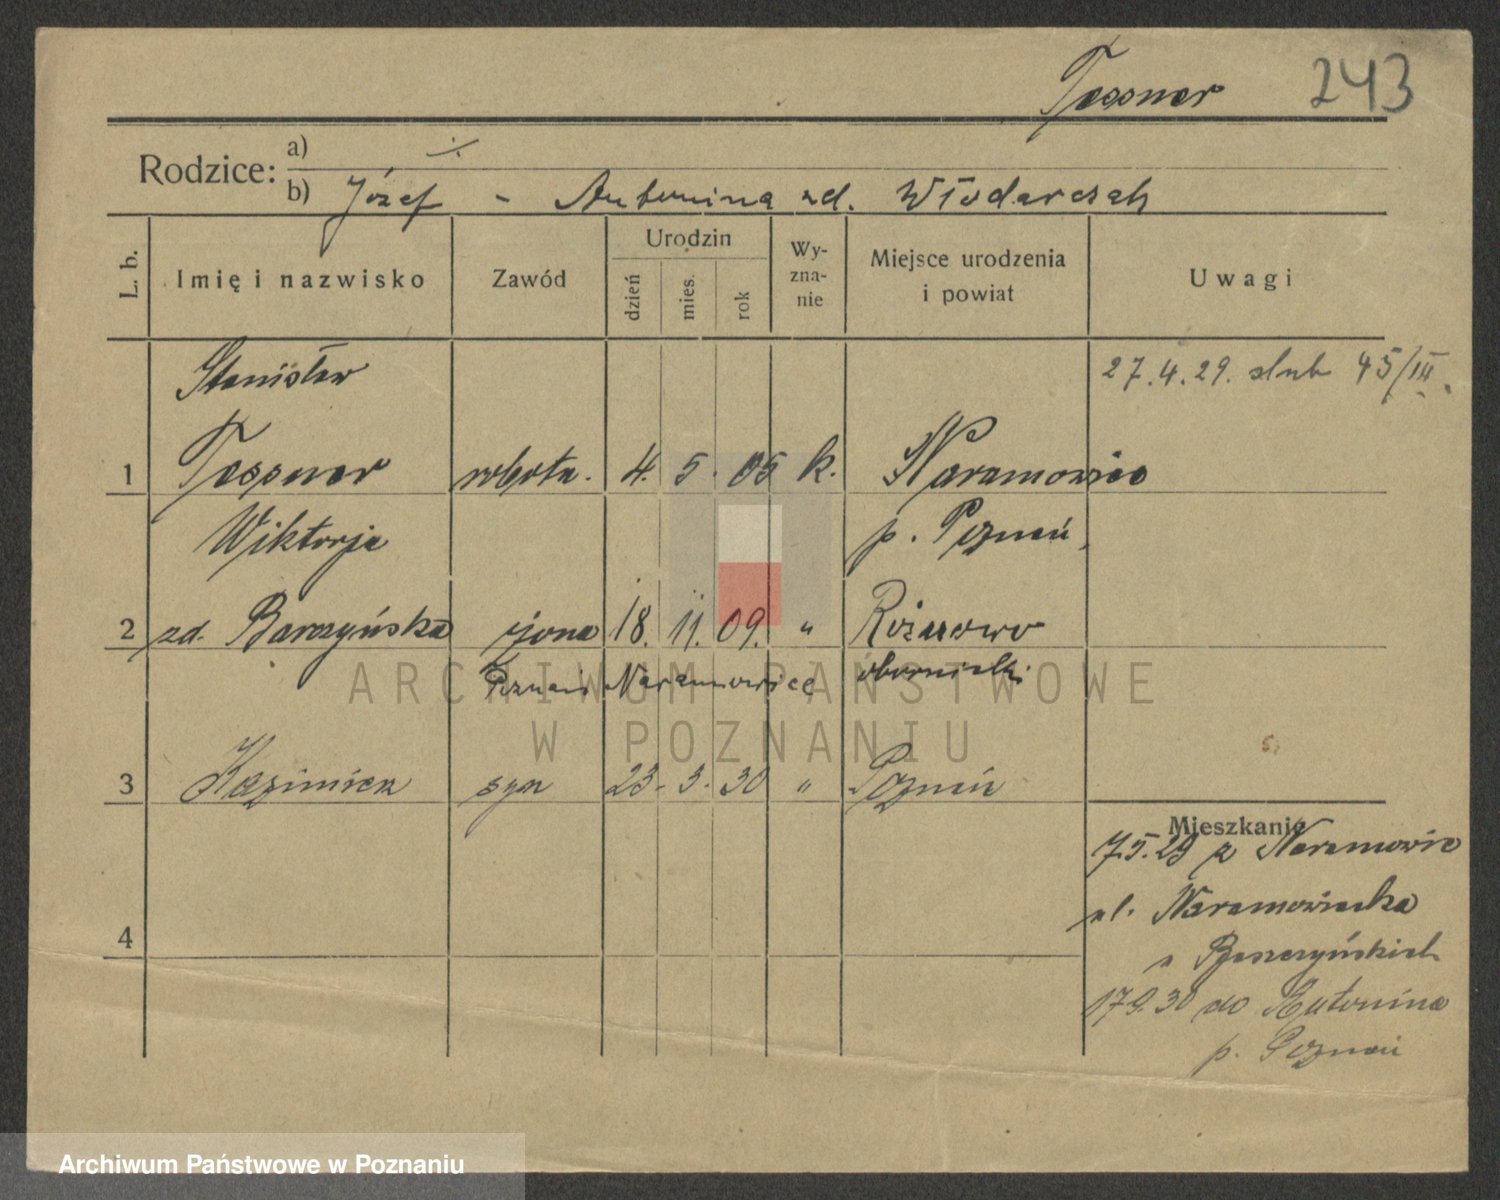 Tessner 243
Rodzice: a) ·/.
b) Józef - Antonina zd. Włodarczak
L. b. Imię i nazwisko Zawód Urodzin dzień mies. rok Wyznanie Miejsce urodzenia i powiat Uwagi
Stanisław 27.4.29. slub 45/III.
1 Tessner robotn. 4. 5. 05 k. Naramowice
Wiktorja p. Poznań,
2 zd. Barczyńska żona 18. 11. 09. " Rożnowo
Poznań Naramowice obornicki
3 Kazimierz syn 23. 3. 30 " Poznań
Mieszkanie
7.5.29 z Naramowic
4 ul. Naramowicka
17.9.30 do Antonina
p. Poznań
ARCHIWUM PAŃSTWOWE
W POZNANIU
Archiwum Państwowe w Poznaniu